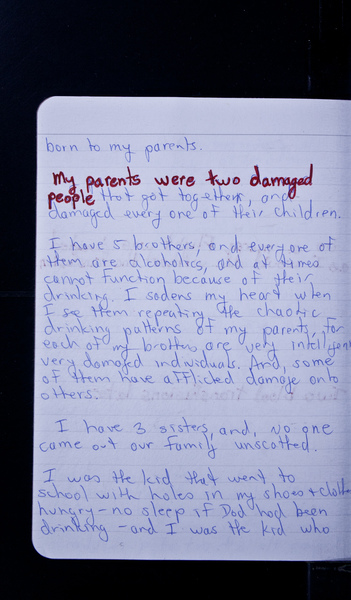 born to my parents.
My parents were two damaged
people that got together, and
damaged every one of their children.
I have 5 brothers, and every one of
them are alcoholics, and at times
cannot function because of their
drinking. I sadens my heart when
I see them repeating the chaotic
drinking patterns of my parents, for
each of my brothers are very intelligent
very damaged individuals. And, some
of them have afflicted damage onto
others.
I have 3 sisters, and, no one
came out our family unscatted.
I was the kid that went to
school with holes in my shoes + clothes
hungry - no sleep if Dad had been
drinking - and I was the kid who